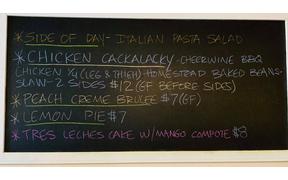 * SIDE OF DAY - ITALIAN PASTA SALAD
* CHICKEN CACKALACKY - CHEERWINE BBQ
CHICKEN 1/4 (LEG & THIGH) HOMESTEAD BAKED BEANS-
SLAW - 2 SIDES $12 (GF BEFORE SIDES)
* PEACH CREME BRULEE $7 (GF)
* LEMON PIE $7
* TRES LECHES CAKE W/ MANGO COMPOTE $8